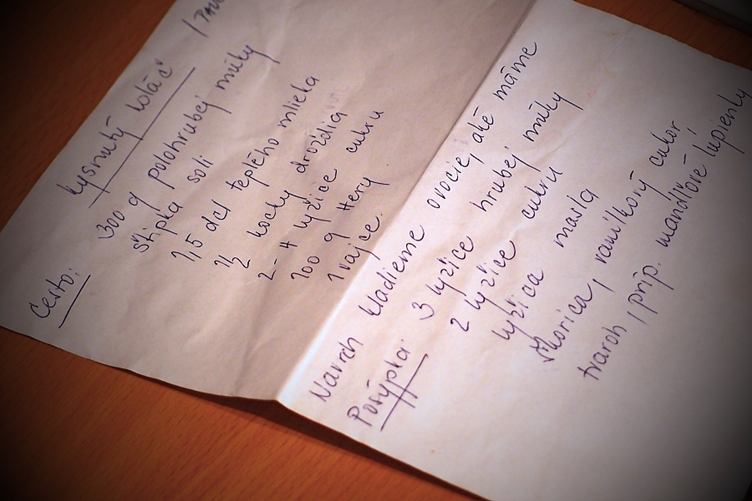 kysnutý koláč
Cesto:
300 g polohrubej múky
štipka soli
1,5 dcl teplého mlieka
1/2 kocky droždia
2-4 lyžice cukru
100 g Hery
1 vajce.
Navrch kladieme ovocie, aké máme
Posýpka: 3 lyžice hrubej múky
2 lyžice cukru
lyžica masla
škorica, vanilkový cukor
tvaroh, príp. mandľové lupienky